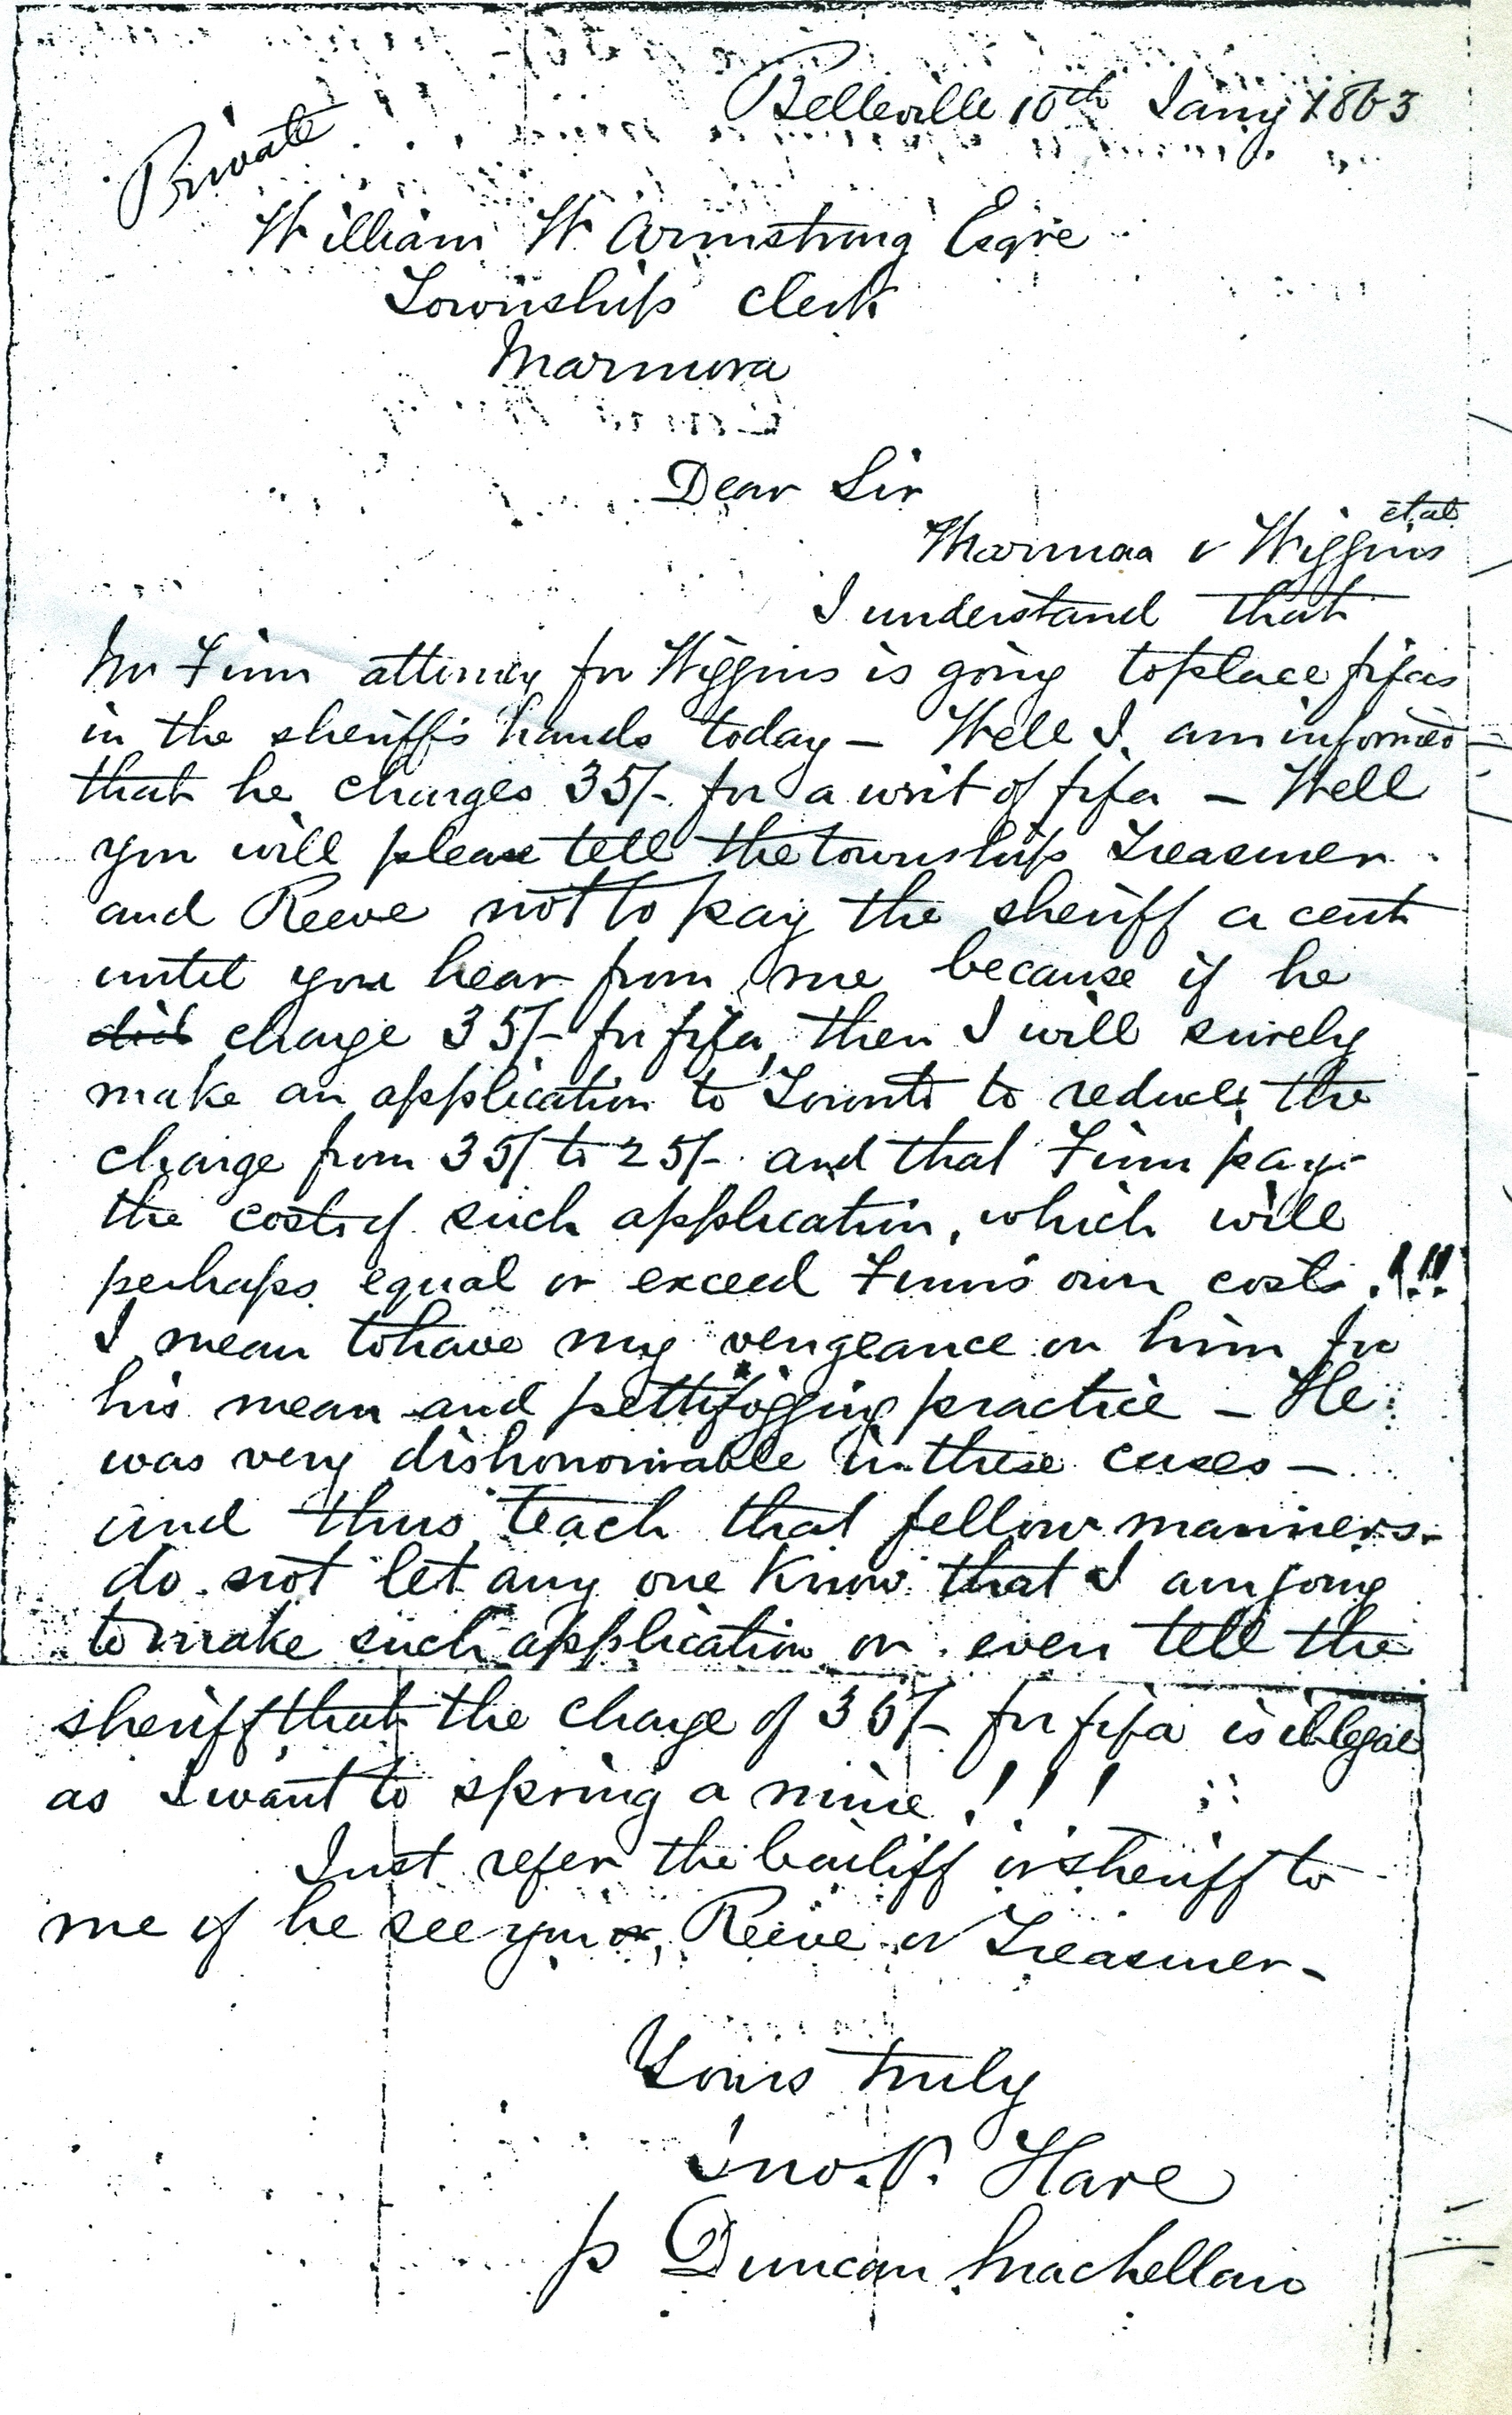 Belleville 10th Jany 1863
Private
William W Armstrong Esqre
Township Clerk
Marmora
Dear Sir
et al
Marmora v Wiggins
I understand that
Mr Finn attorney for Wiggins is going to place fifas
in the sheriff's hands today — Well I am informed
that he charges 35/- for a writ of fifa — Well
you will please tell the township Treasurer
and Reeve not to pay the sheriff a cent
until you hear from me because if he
did charge 35/- for fifa, then I will surely
make an application to Toronto to reduce the
charge from 35/ to 25/- and that Finn pay
the costs of such application, which will
perhaps equal or exceed Finn's own costs.!!!
I mean to have my vengeance on him for
his mean and pettifogging practice — He
was very dishonourable in these cases —
and thus teach that fellow manners.
do not let any one know that I am going
to make such application or even tell the
sheriff that the charge of 35/- for fifa is illegal
as I want to spring a mine !!!
Just refer the bailiff or sheriff to
me if he see you or, Reeve or Treasurer —
Yours truly
Jno. P. Hare
p Duncan